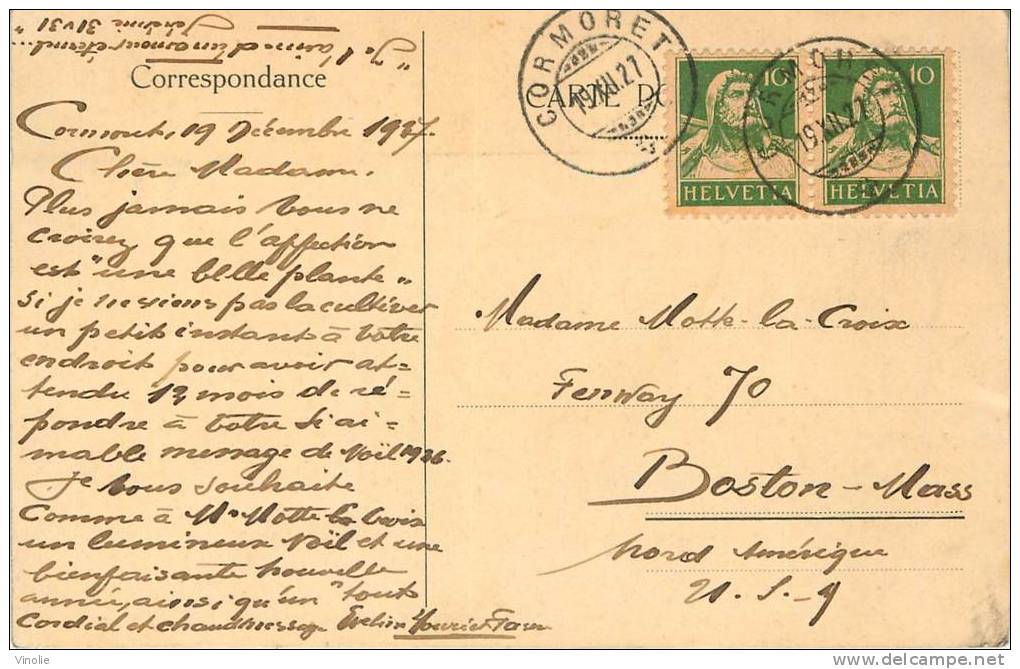 " Je t'aime d'un amour éternel... "
Jérémie 31 v 3
Correspondance
CARTE PO
CORMORET
19.XII.27
10
HELVETIA
10
HELVETIA
19.XII.27
Cormoret, 19 Décembre 1927.
Chère Madame,
Plus jamais vous ne
croirez que l'affection
est "une belle plante"
si je ne viens pas la cultiver
un petit instant à votre
endroit pour avoir at=
tendu 12 mois de ré=
pondre à votre si ai=
mable message de Noël 1926.
Je vous souhaite
comme à Mr Motte la Croix
un lumineux Noël et une
bienfaisante nouvelle
année, ainsi qu'un tout
cordial et chaud message
Madame Motte-la-Croix
Fenway 70
Boston - Mass
Nord Amérique
U. S. A
Vinolie
http://www.delcampe.net